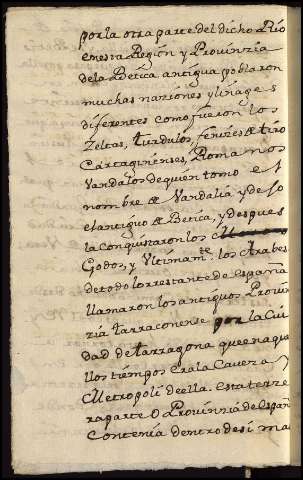 por la otra parte del dicho Rio
en esta Region y Provinzia
de la Betica antigua poblaron
muchas naziones y linages
diferentes como fueron los
Zeltas, turdulos, fenizes de tiro
Cartaginenses, Romanos
Vandalos de quien tomo el
nombre de Vandalia y dejo
el antiguo de Betica, y despues
la Conquistaron los
Godos, y Ultimamte. los Arabes
de todo lo restante de españa
llamaron los antiguos Provin
zia tarraconense por la Ciu
dad de tarragona que en aque
llos tiempos era la Caveza y
Metropoli de ella. esta terze
ra parte O Provinzia de españa
Contenia dentro de si ma